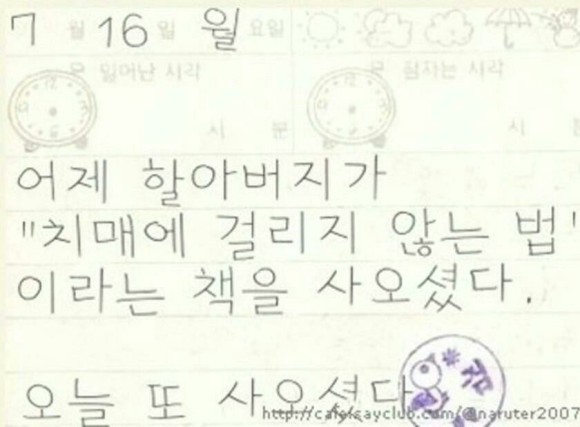 7 월 16 일 월 요일
일어난 시각 잠자는 시각
시 분 시
어제 할아버지가
"치매에 걸리지 않는 법"
이라는 책을 사오셨다.
오늘 또 사오셨다
http://cafe.sayclub.com/@naruter2007